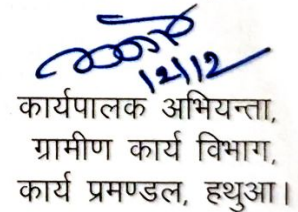 12/12
कार्यपालक अभियन्ता,
ग्रामीण कार्य विभाग,
कार्य प्रमण्डल, हथुआ।